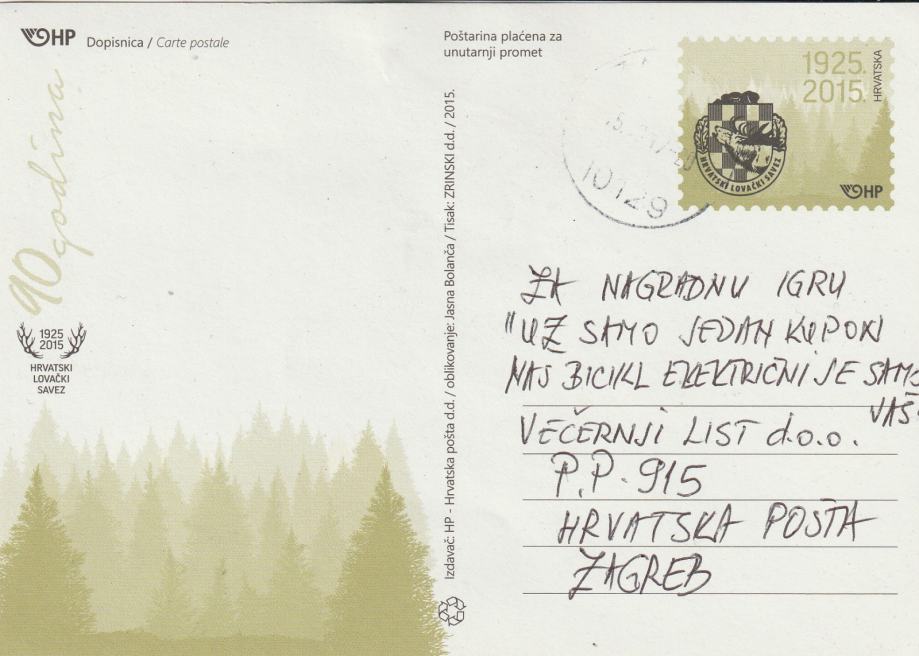 HP Dopisnica / Carte postale
90 godina
1925
2015
HRVATSKI
LOVAČKI
SAVEZ
Izdavač: HP - Hrvatska pošta d.d. / oblikovanje: Jasna Bolanča / Tisak: ZRINSKI d.d. / 2015.
Poštarina plaćena za
unutarnji promet
1925.
2015.
HRVATSKA
HRVATSKI LOVAČKI SAVEZ
HP
10129
ZA NAGRADNU IGRU
"UZ SAMO JEDAN KUPON
NAŠ BICIKL ELEKTRIČNI JE SAMO
VAŠ"
VEČERNJI LIST d.o.o.
P.P. 915
HRVATSKA POŠTA
ZAGREB